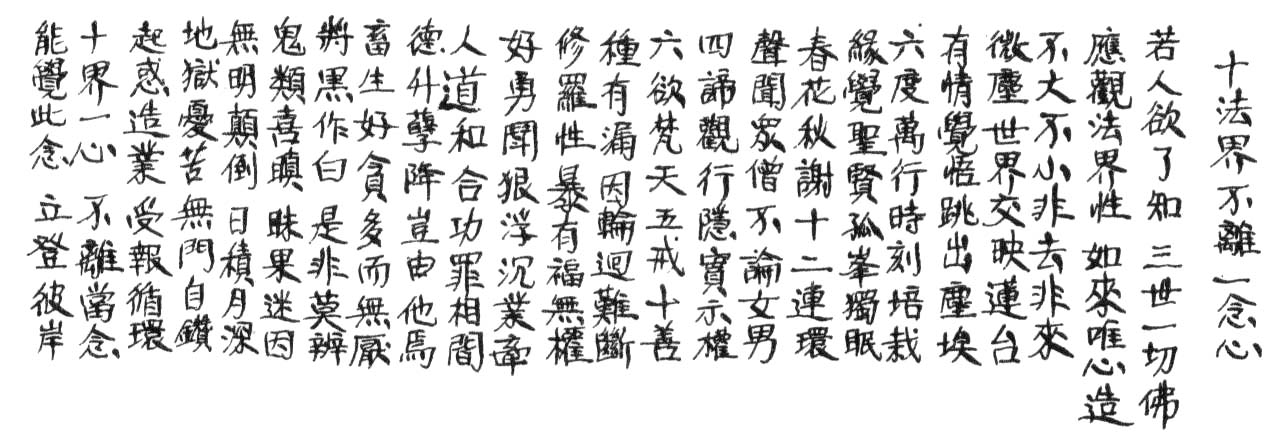 十法界不離一念心
若人欲了知 三世一切佛
應觀法界性 如來唯心造
不大不小非去非來
微塵世界交映蓮台
有情覺悟跳出塵埃
六度萬行時刻培栽
緣覺聖賢孤峯獨眠
春花秋謝十二連環
聲聞眾僧不論女男
四諦觀行隱實示權
六欲梵天五戒十善
種有漏因輪迴難斷
修羅性暴有福無權
好勇鬪狠浮沉業牽
人道和合功罪相間
德升孽降豈由他焉
畜生好貪多而無厭
將黑作白 是非莫辨
鬼類喜瞋 昧果迷因
無明顛倒 日積月深
地獄憂苦 無門自鑽
起惑造業 受報循環
十界一心 不離當念
能覺此念 立登彼岸